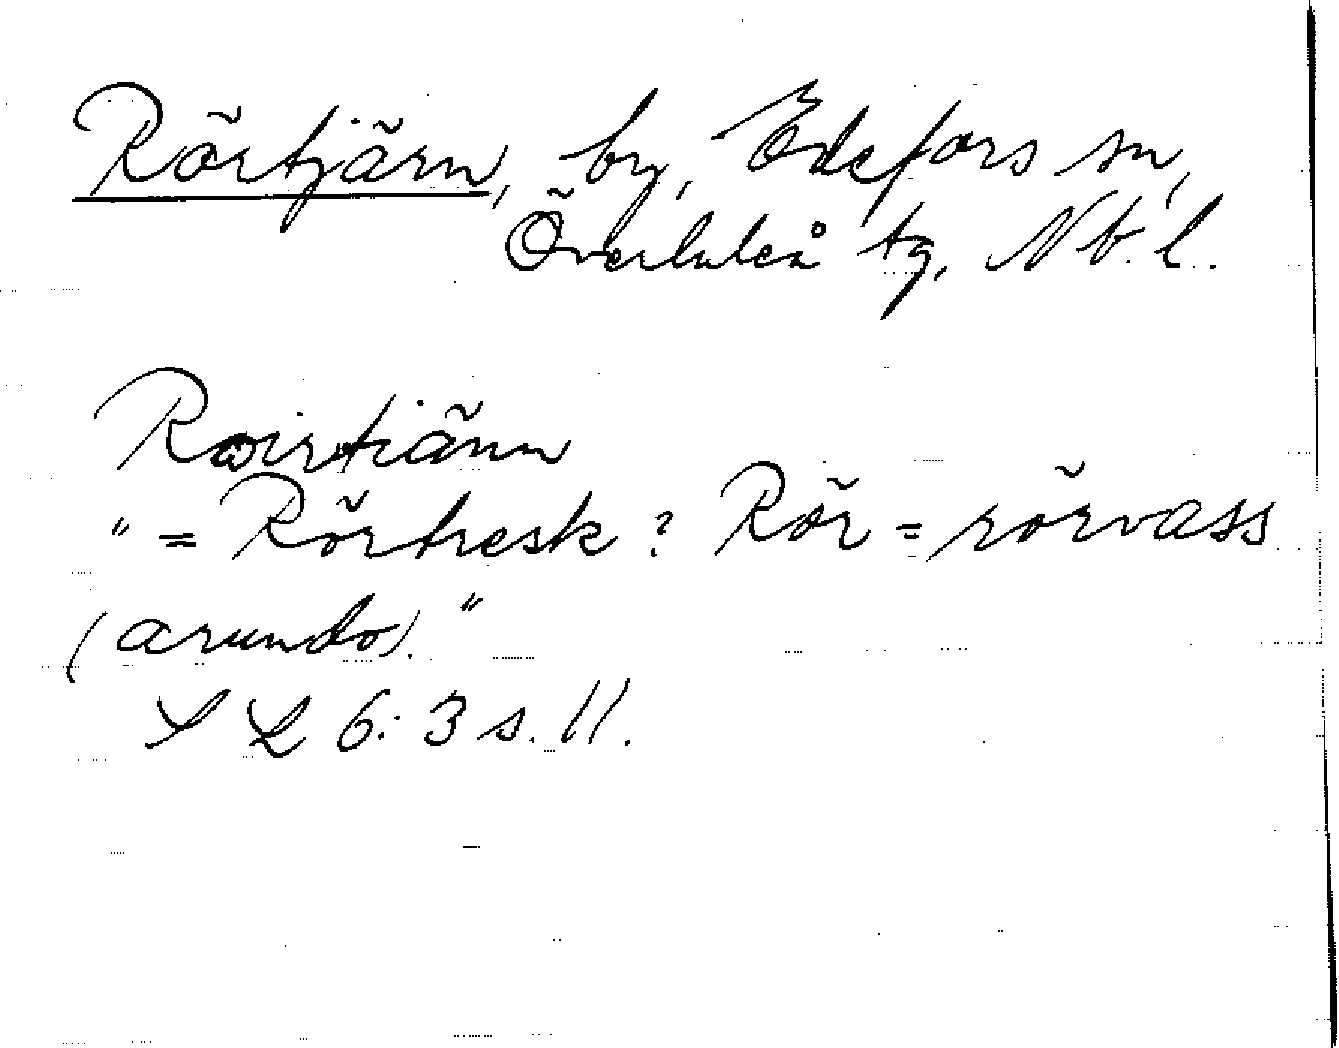 Rörtjärn, by, Edefors sn,
Överluleå tg, Nb. l.
Roirtiänn
" = Rörtresk? Rör = rörvass
(arundo)."
S L 6:3 s. 11.